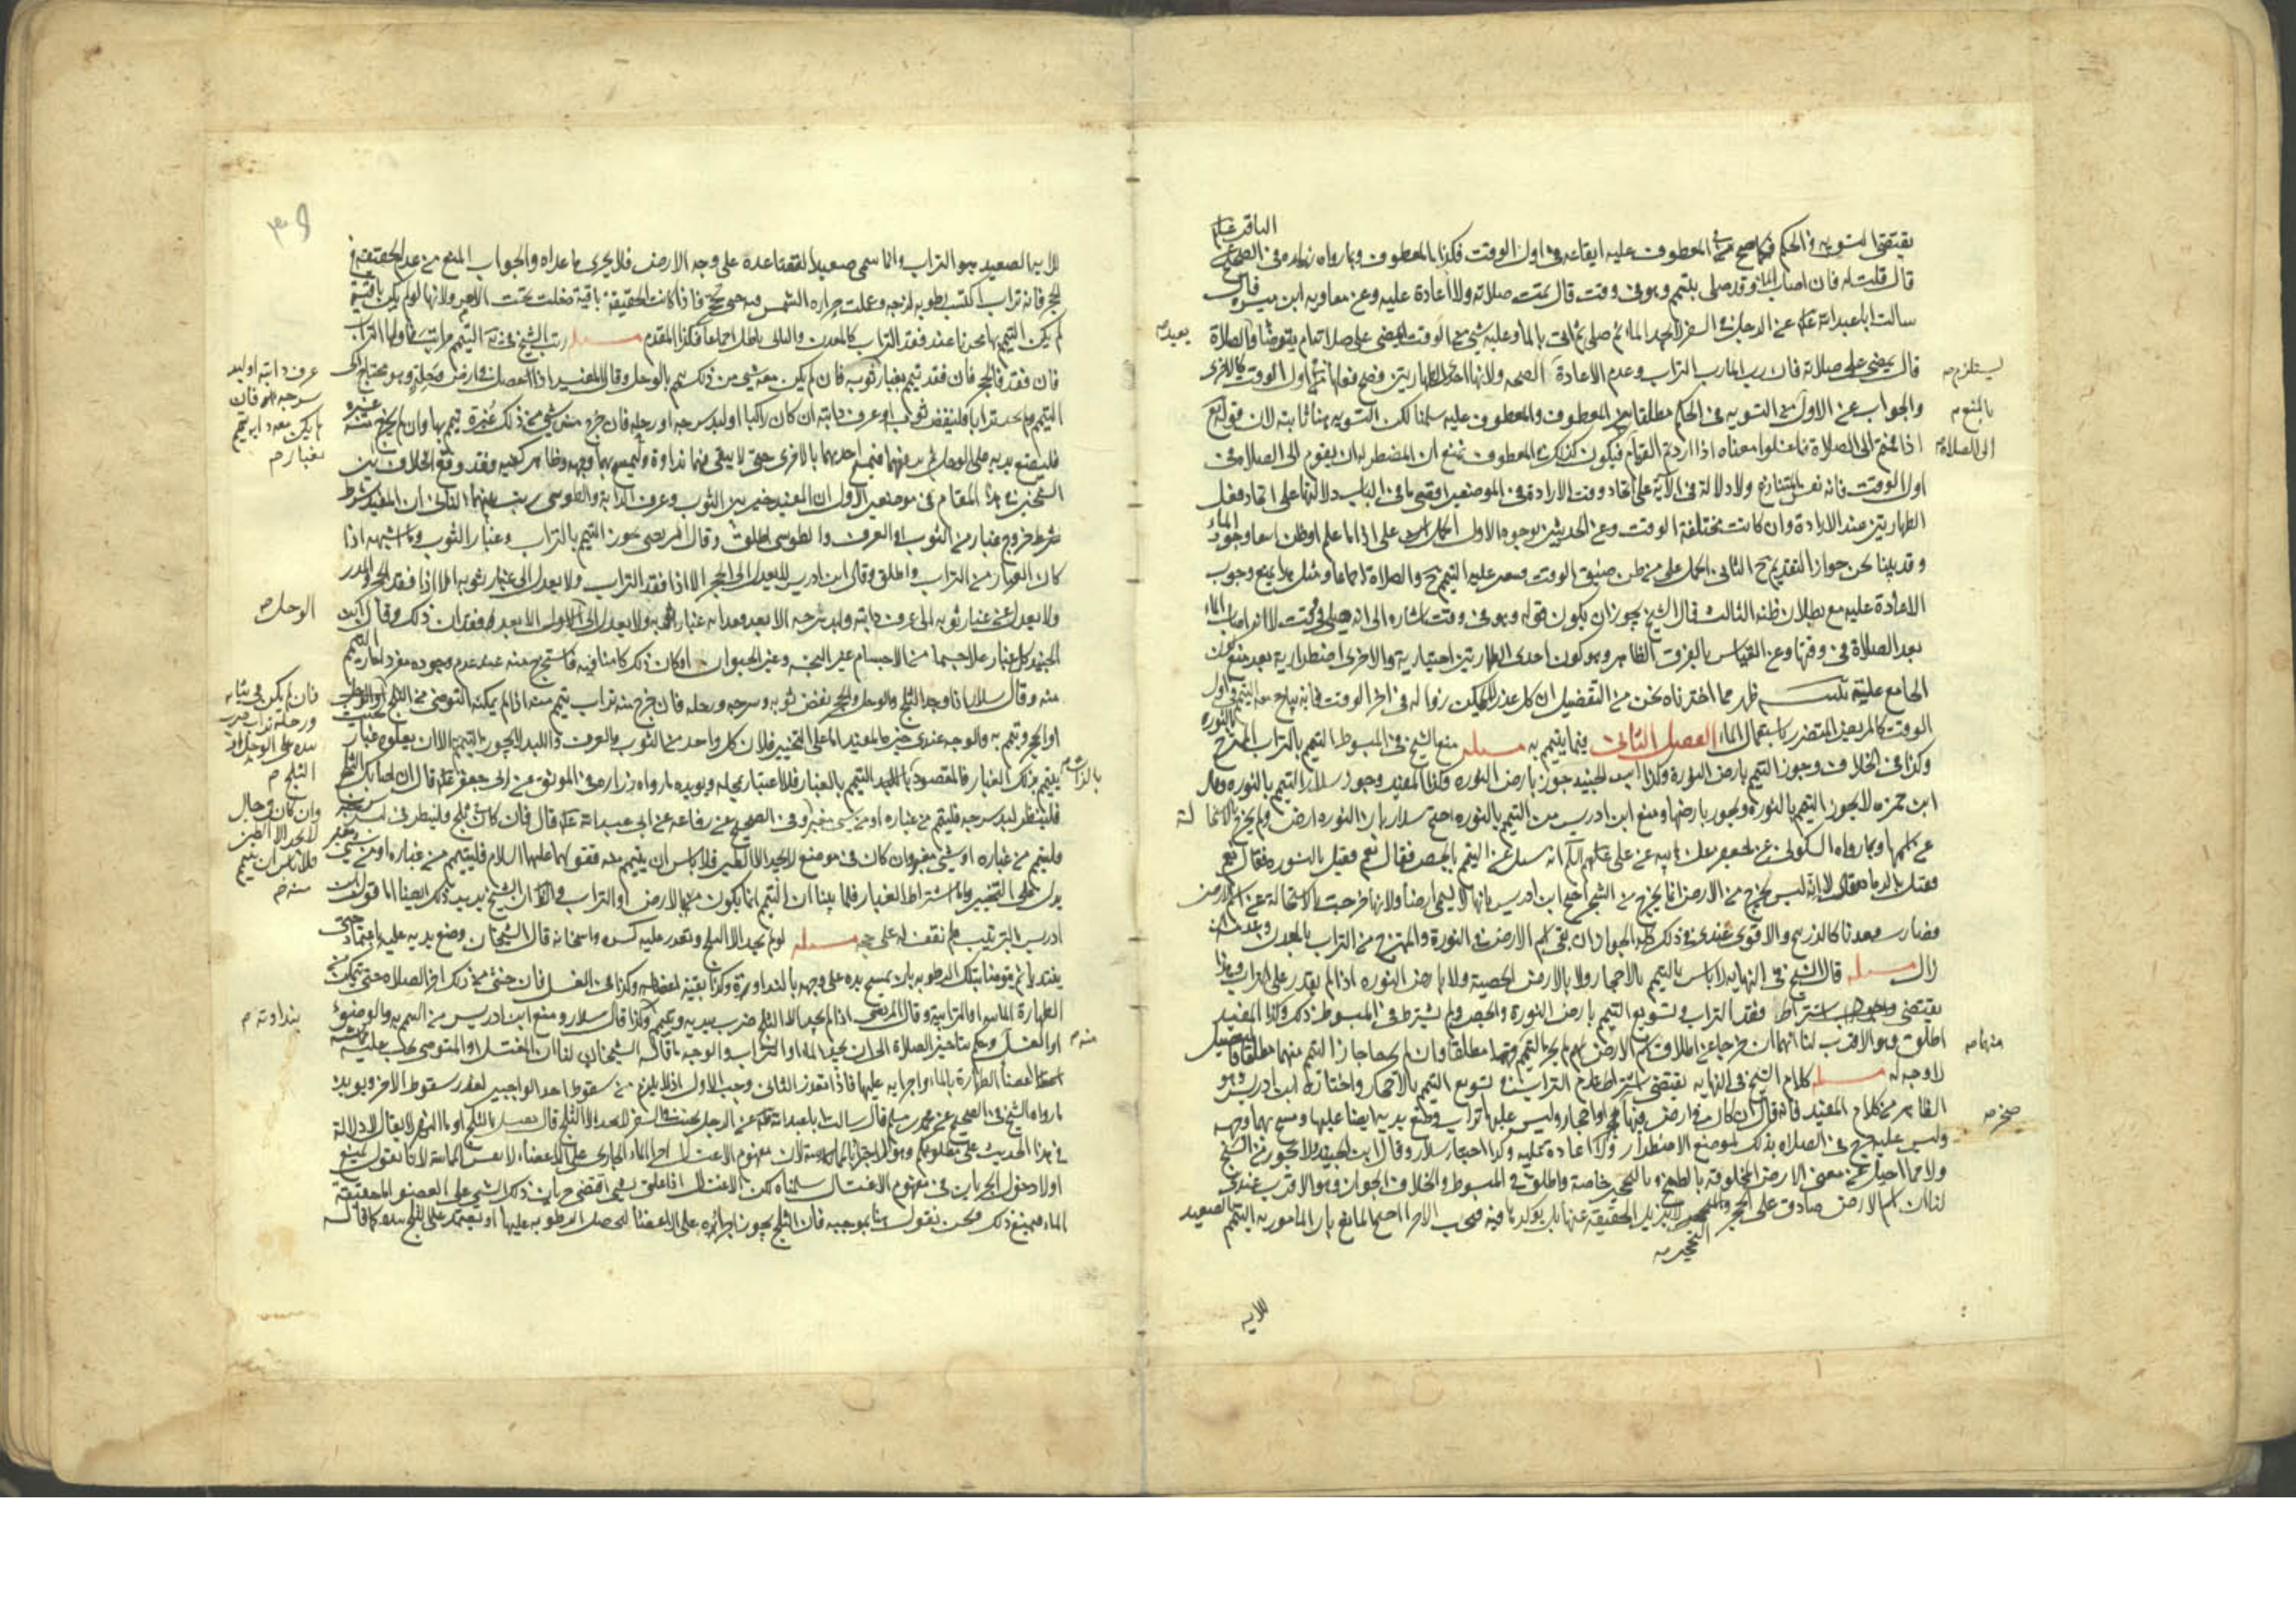 الباقر عليه
يقتضي التسوية في الحكم فكما صح في المعطوف عليه ايقاعه في اول الوقت فكذا المعطوف وبما رواه زراره في الصحيح عن
قال قلت له فان اصاب الماء وقد صلى بتيمم وهو في وقت قال تمت صلاته ولا اعادة عليه وعن معاويه ابن ميسره قال
سالت ابا عبد الله عن الرجل في السفر لا يجد الماء ثم صلى ثم اتى بالماء وعليه شي من الوقت ايمضي على صلاته ام يتوضأ ويعيد الصلاة
قال يمضي على صلاته فان رب الماء رب التراب وعدم الاعادة الصحه ولانها احدى الطهارتين فصح فعلها في اول الوقت كالاخرى
والجواب عن الاول من التسويه في الحكم مطلقا بين المعطوف والمعطوف عليه سلمنا لكن التسويه هنا ثابته لان قوله تع
اذا قمتم الى الصلاة فاغسلوا معناه اذا اردتم القيام فيكون كذلك في المعطوف نمنع ان المضطر له ان يقوم الى الصلاة في
اول الوقت فانه نفس المتنازع ولا دلالة في الآية على اتحاد وقت الارادة في الموضعين اقصى ما في الباب دلالتها على اتحاد فعل
الطهارتين عند الارادة وان كانت مختلفة الوقت وعن الحديثين بوجوه الاول الحمل على اذا ما علم او ظن انتفاء وجود الماء
وقد بينا نحن جواز التقديم ح الثاني الحمل على من ظن ضيق الوقت
الاعادة عليه مع بطلان ظنه الثالث قال الشيخ يجوز ان يكون قوله وهو في وقت اشاره الى انه صلى في وقت لا انه اصاب الماء
بعد الصلاة في وقتها وعن القياس بالفرق الظاهر وهو كون احدى الطهارتين اختيارية والاخرى اضطرارية بعد منع كون
الجامع علية ظهر مما اخترناه نحن من التفصيل ان كل عذر لا يمكن زواله في اخر الوقت فانه يباح معه التيمم في اول
الوقت كالمريض المتضرر باستعمال الماء الفصل الثاني فيما يتيمم به مسئله منع الشيخ في المبسوط التيمم بالتراب الممتزج بالنوره
وكذا في الخلاف وجوز التيمم بارض النورة وكذا ابن الجنيد جوز بارض النوره وكذا المفيد وجوز سلار التيمم بالنوره وقال
ابن حمزه لا يجوز التيمم بالنوره ويجوز بارضها ومنع ابن ادريس من التيمم بالنوره احتج سلار بان النوره ارض ولم يخرج بالاستحالة
عن اسمها وبما رواه السكوني عن جعفر عن ابيه عن علي انه سئل عن التيمم بالجص فقال نعم فقيل بالنوره فقال نعم
فقيل بالرماد فقال لا انه ليس يخرج من الارض انما يخرج من الشجر احتج ابن ادريس بانها لا تسمى ارضا ولانها خرجت بالاستحالة عن اسم الارض
فصارت معدنا كالزرنيخ والاقوى عندي في ذلك كله الجواز ان بقي اسم الارض في النورة والممتزج من التراب بالمعدن
زال مسئله قال الشيخ في النهايه لا باس بالتيمم بالاحجار ولا بالارض الجصية ولا بارض النوره اذا لم يقدر على التراب وهذا
يقتضي اشتراط فقد التراب وتسويغ التيمم بارض النورة والجص ولم يشترط في المبسوط ذلك وكذا المفيد
اطلق وهو الاقرب لنا انهما ان خرجا عن اطلاق اسم الارض لم يجز التيمم بهما مطلقا وان لم يخرجا جاز التيمم منهما مطلقا فالتفصيل
لا وجه له مسئله كلام الشيخ في النهايه يقتضي اشتراط عدم التراب في تسويغ التيمم بالاحجار واختاره ابن ادريس وهو
الظاهر من كلام المفيد فانه قال ان كان في ارض فيها صخر او احجار وليس عليها تراب وضع يديه ايضا عليها ومسح بهما وجهه
وليس عليه حرج في الصلاة بذلك لموضع الاضطرار ولا اعادة عليه وكذا اختيار سلار وقال ابن الجنيد ولا يجوز من السبخ
ولا مما احيل عن معنى الارض المخلوقة بالطبخ و بالتحجير خاصة واطلق في المبسوط والخلاف الجواز وهو الاقرب عندي
لنا ان اسم الارض صادق على الحجر والتحجر لا يزيل الحقيقه عنها بل يؤكد ما فيه فيجب الاجزاء احتج المانع بان المامور به التيمم بالصعيد
للايه
يعيد صه
ليستلزم صه
بالمنع م
الى الصلاة م
منهما صه
صخر صه
التحجير صه
للايه والصعيد هو التراب وانما سمي صعيدا لتصاعده على وجه الارض فلا يجزي ما عداه والجواب المنع من عدم الحقيقة في
الحجر فانه تراب اكتسب رطوبه لزجه وعملت حراره الشمس فيه حتى تحجر فاذا كانت الحقيقة باقية دخلت تحت الامر ولانها لو لم يكن باقية
لم يكن التيمم بها مجزيا عند فقد التراب كالمعدن والتالي باطل اجماعا فكذا المقدم مسئله رتب الشيخ في يه التيمم مراتب فاولها التراب
فان فقد فالحجر فان فقد تيمم بغبار ثوبه فان لم يكن معه شي من ذلك تيمم بالوحل وقال المفيد اذا حصل في ارض وحلة وهو محتاج الى
التيمم ولم يجد ترابا فلينفض ثوبه او عرف دابته ان كان راكبا او لبد سرجه او رحله فان خرج من شي من ذلك غبرة تيمم بها وان لم يخرج منه غبره
فليضع يديه على الوحل ثم يرفعهما فيمسح احديهما بالاخرى حتى لا يبقى فيهما نداوة وليمسح بهما وجهه وظاهر كفيه وقد وقع الخلاف بين
الشيخين في هذا المقام في موضعين الاول ان المفيد خير بين الثوب وعرف الدابة والطوسي رتب بينهما الثاني ان المفيد شرط
خروج غبار من الثوب او العرف والطوسي اطلق وقال المرتضى يجوز التيمم بالتراب وغبار الثوب وما اشبهه اذا
كان الغبار من التراب واطلق وقال ابن ادريس لا يعدل الى الحجر الا اذا فقد التراب ولا يعدل الى غبار ثوبه الا اذا فقد الحجر والمدر
ولا يعدل عن غبار ثوبه الى عرف دابته ولبد سرجه الا بعد فقدانه غبار ثوبه ولا يعدل الى الوحل الا بعد فقدان ذلك وقال ابن
الجنيد كل غبار علا جسما من الاجسام غير النجسه وغير الحيوان او كان ذلك كامنا فيه فاستخرج منه عند عدم وجوده مفردا جاز التيمم
منه وقال سلار اذا وجد الثلج والوحل والحجر نفض ثوبه وسرجه ورحله فان خرج منه تراب تيمم منه اذا لم يمكنه التوضي من الثلج
او الحجر وتيمم به والوجه عندي خيرة المفيد اما على التخيير فلان كل واحد من الثوب والعرف واللبد لا يجوز التيمم به الا ان يعلوه غبار
يتيمم بذلك الغبار فالمقصود بالذات التيمم بالغبار فلا اعتبار بمحله ويؤيده ما رواه زراره في الموثق عن ابي جعفر قال ان اصابك الثلج
فلينظر لبد سرجه فليتيمم من غباره او من شي مغبر وفي الصحيح عن رفاعه عن ابي عبد الله قال فان كان ثلج فلينظر في لبد سرجه
فليتيمم من غباره او شي مغبر وان كان في موضع لا يجد الا الطين فلا باس ان يتيمم منه فقولهما عليهما السلام فليتيمم من غباره او من شي مغبر
يدل على التخيير واما اشتراط الغبار فلما بينا ان التيمم انما يكون بالارض او التراب والظاهر ان الشيخ يريد ذلك ايضا اما قول ابن
ادريس بالترتيب فلم نقف له على حجه مسئله لو لم يجد الا الثلج وتعذر عليه كسره واسخانه قال الشيخان وضع يديه عليه باعتماد حتى
يتنديا ثم يتوضا بتلك الرطوبه بان يمسح يده على وجهه بالنداوه وكذا بقية اعضائه وكذا في الغسل فان خشي من ذلك اخر الصلاه حتى يتمكن من
الطهارة المائيه او الترابية وقال المرتضى اذا لم يجد الا الثلج ضرب بيديه وتيمم وكذا قال سلار ومنع ابن ادريس من التيمم به والوضوء
او الغسل وحكم بتاخير الصلاة الى ان يجد الماء او التراب والوجه ما قاله الشيخان لنا ان المغتسل او المتوضي يجب عليه مماسة
اعضاء الطهارة بالماء واجرائه عليها فاذا تعذر الثاني وجب الاول اذ لا يلزم من سقوط احد الواجبين لعذر سقوط الاخر ويؤيده
ما رواه الشيخ في الصحيح عن محمد بن مسلم قال سالت ابا عبد الله عن الرجل يجنب في السفر لا يجد الا الثلج قال يغتسل بالثلج او ماء النهر لا يقال لا دلالة
في هذا الحديث على مطلوبكم وهو الاجتزاء بالمماسة لان مفهوم الاغتسال اجراء الماء الجاري على الاعضاء لا نفس المماسة لانا نقول نمنع
اولا دخول الجريان في مفهوم الاغتسال سلمناه لكن الاغتسال اذا علق بشي اقتضى جريان ذلك الشي على العضو اما حقيقة
الماء فيمنع ذلك ونحن نقول هنا بموجبه فان الثلج يجوز اجزائه على الاعضاء لتحصل الرطوبه عليها او يعتمد على الثلج بيده كما قاله
عرف دابته او لبد
سرجه فان
لم يكن معه دابه تيمم
بغبار م
الوحل صه
فان لم يكن في ثيابه
ورحله تراب ضرب
بيده على الوحل او
الثلج م
بالذات صه
وان كان في حال
لا يجد الا الطين
فلا باس ان يتيمم
منه م
بنداوته م
منه م